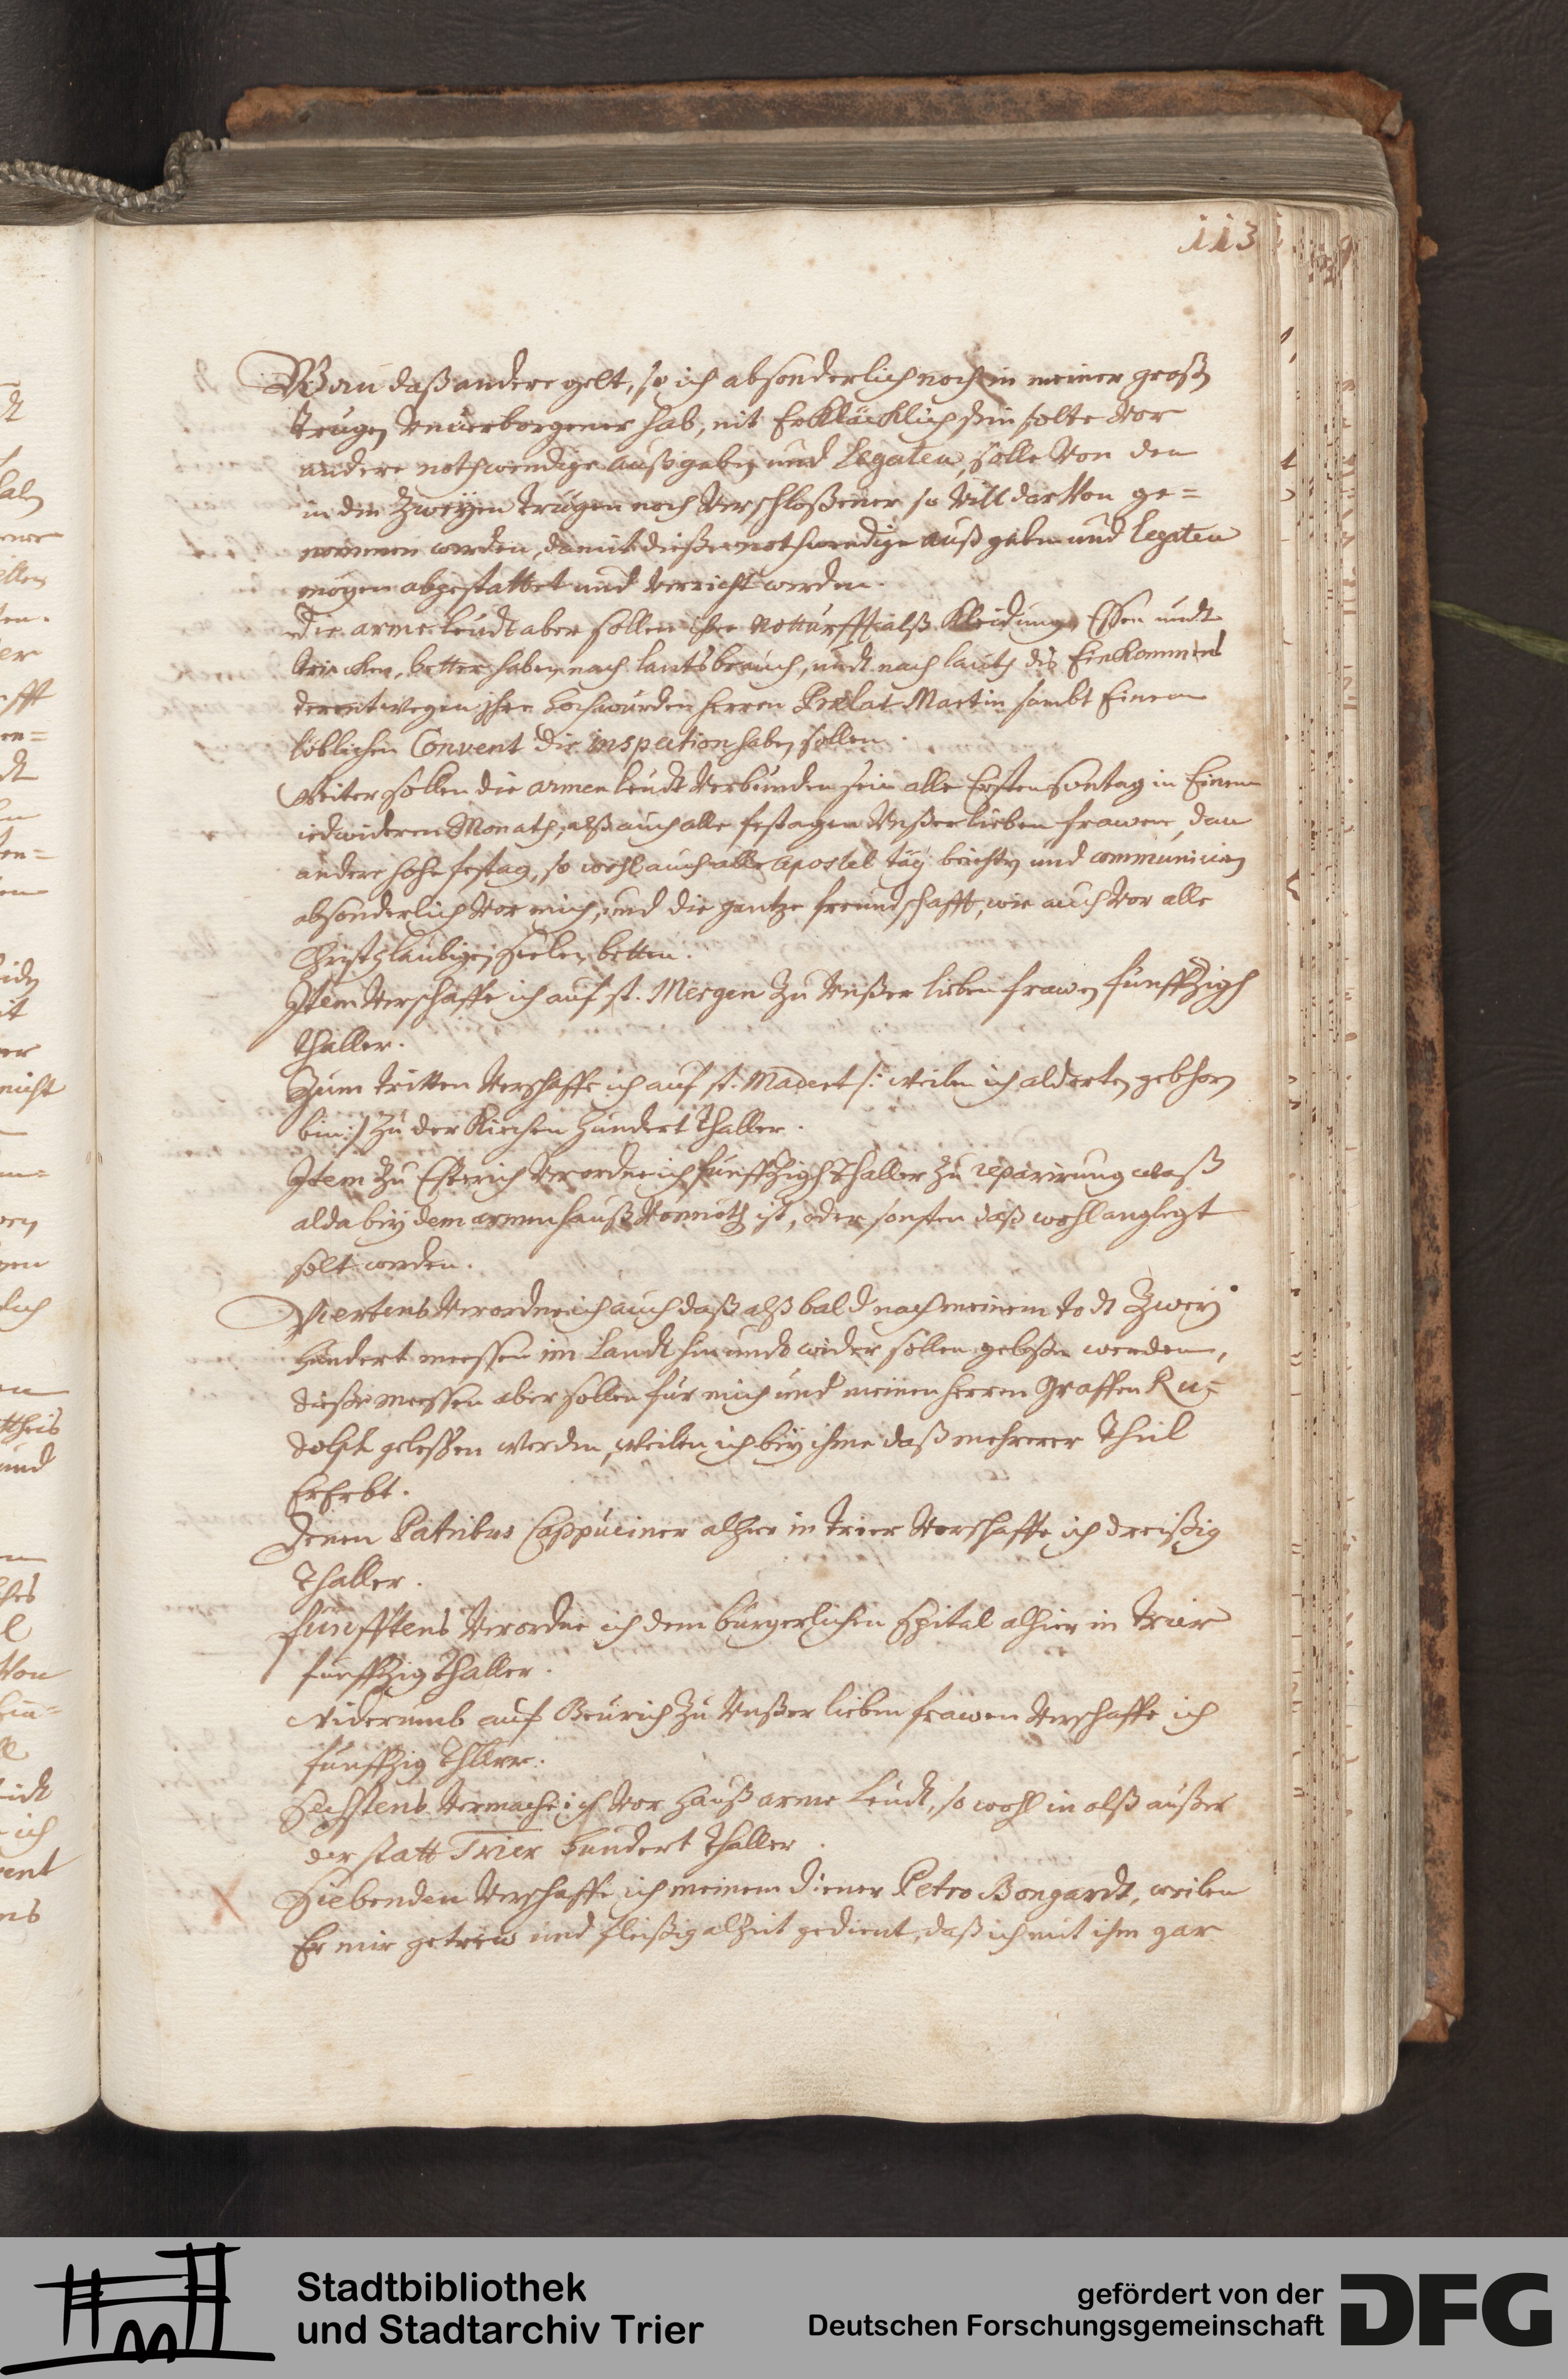 113
Wan daß andere gelt, so ich absonderlich noch in meiner große
trugen unverborgener hab, nit Erkläcklich sein solte vor
andere nothwendige außgaben und Legaten, solle von den
in den Zweyen trugen noch verschloßener so vill darvon ge=
nommen werden, damit dieße nothwendige außgaben und legaten
mögen abgestattet und verricht werden.
Die arme Leudt aber sollen ihre notturfft alß Kleidung, Essen undt
trincken, better haben nach lantsbrauch, undt nach lauth des Einkommens
derentwegen ihre hochwürden herren Prælat Martin sambt Einem
löblichen Convent die inspection haben sollen.
Weiter sollen die armen leudt verbunden sein alle Ersten sontag in Einem
iedwederen Monath, alß auch alle festagen Unßer lieben frawen, dan
andere hohe festag, so wohl auch alle Apostel täg beichten und communiciren
absonderlich vor mich, und die gantze freundschafft, wie auch vor alle
Christglaubigen Seelen betten.
Item verschaffe ich auf st. Mergen Zu Unßer lieben frawen fünffzigh
thaller.
Zum tritten verschaffe ich auf st. Madeet /: weilen ich aldorten gebohren
bin :/ Zu der Kirchen hundert thaller.
Item Zu Esterich verordne ich fünffzigh thaller Zu reparirung waß
alda bey dem armen hauß vonnöth ist, oder sonsten daß wohl anglegt
solt werden.
Viertens verordne ich auch daß alß bald nach meinem todt Zwey
hundert messen im Landt hin undt wider sollen geleßen werden,
dieße messen aber sollen für mich und meinen herren Graffen Ru=
dolph geleßen werden, weilen ich bey ihme daß mehrerer theil
Ererbt.
Denen Patribus Cappuciner alhier in trier verschaffe ich dreißig
thaller.
fünfftens verordne ich dem bürgerlichen spital alhier in trier
fünffzig thaller.
Widerumb auf Beurich Zu Unßer lieben frawen verschaffe ich
fünffzig thller.
Sechstens vermache ich vor hauß arme Leudt, so wohl in alß außer
der statt Trier hundert thaller.
Siebenden verschaffe ich meinem diener Petro Bongardt, weilen
Er mir getrew und fleißig alzeit gedient, daß ich mit ihm gar
Stadtbibliothek
und Stadtarchiv Trier
gefördert von der
Deutschen Forschungsgemeinschaft
DFG